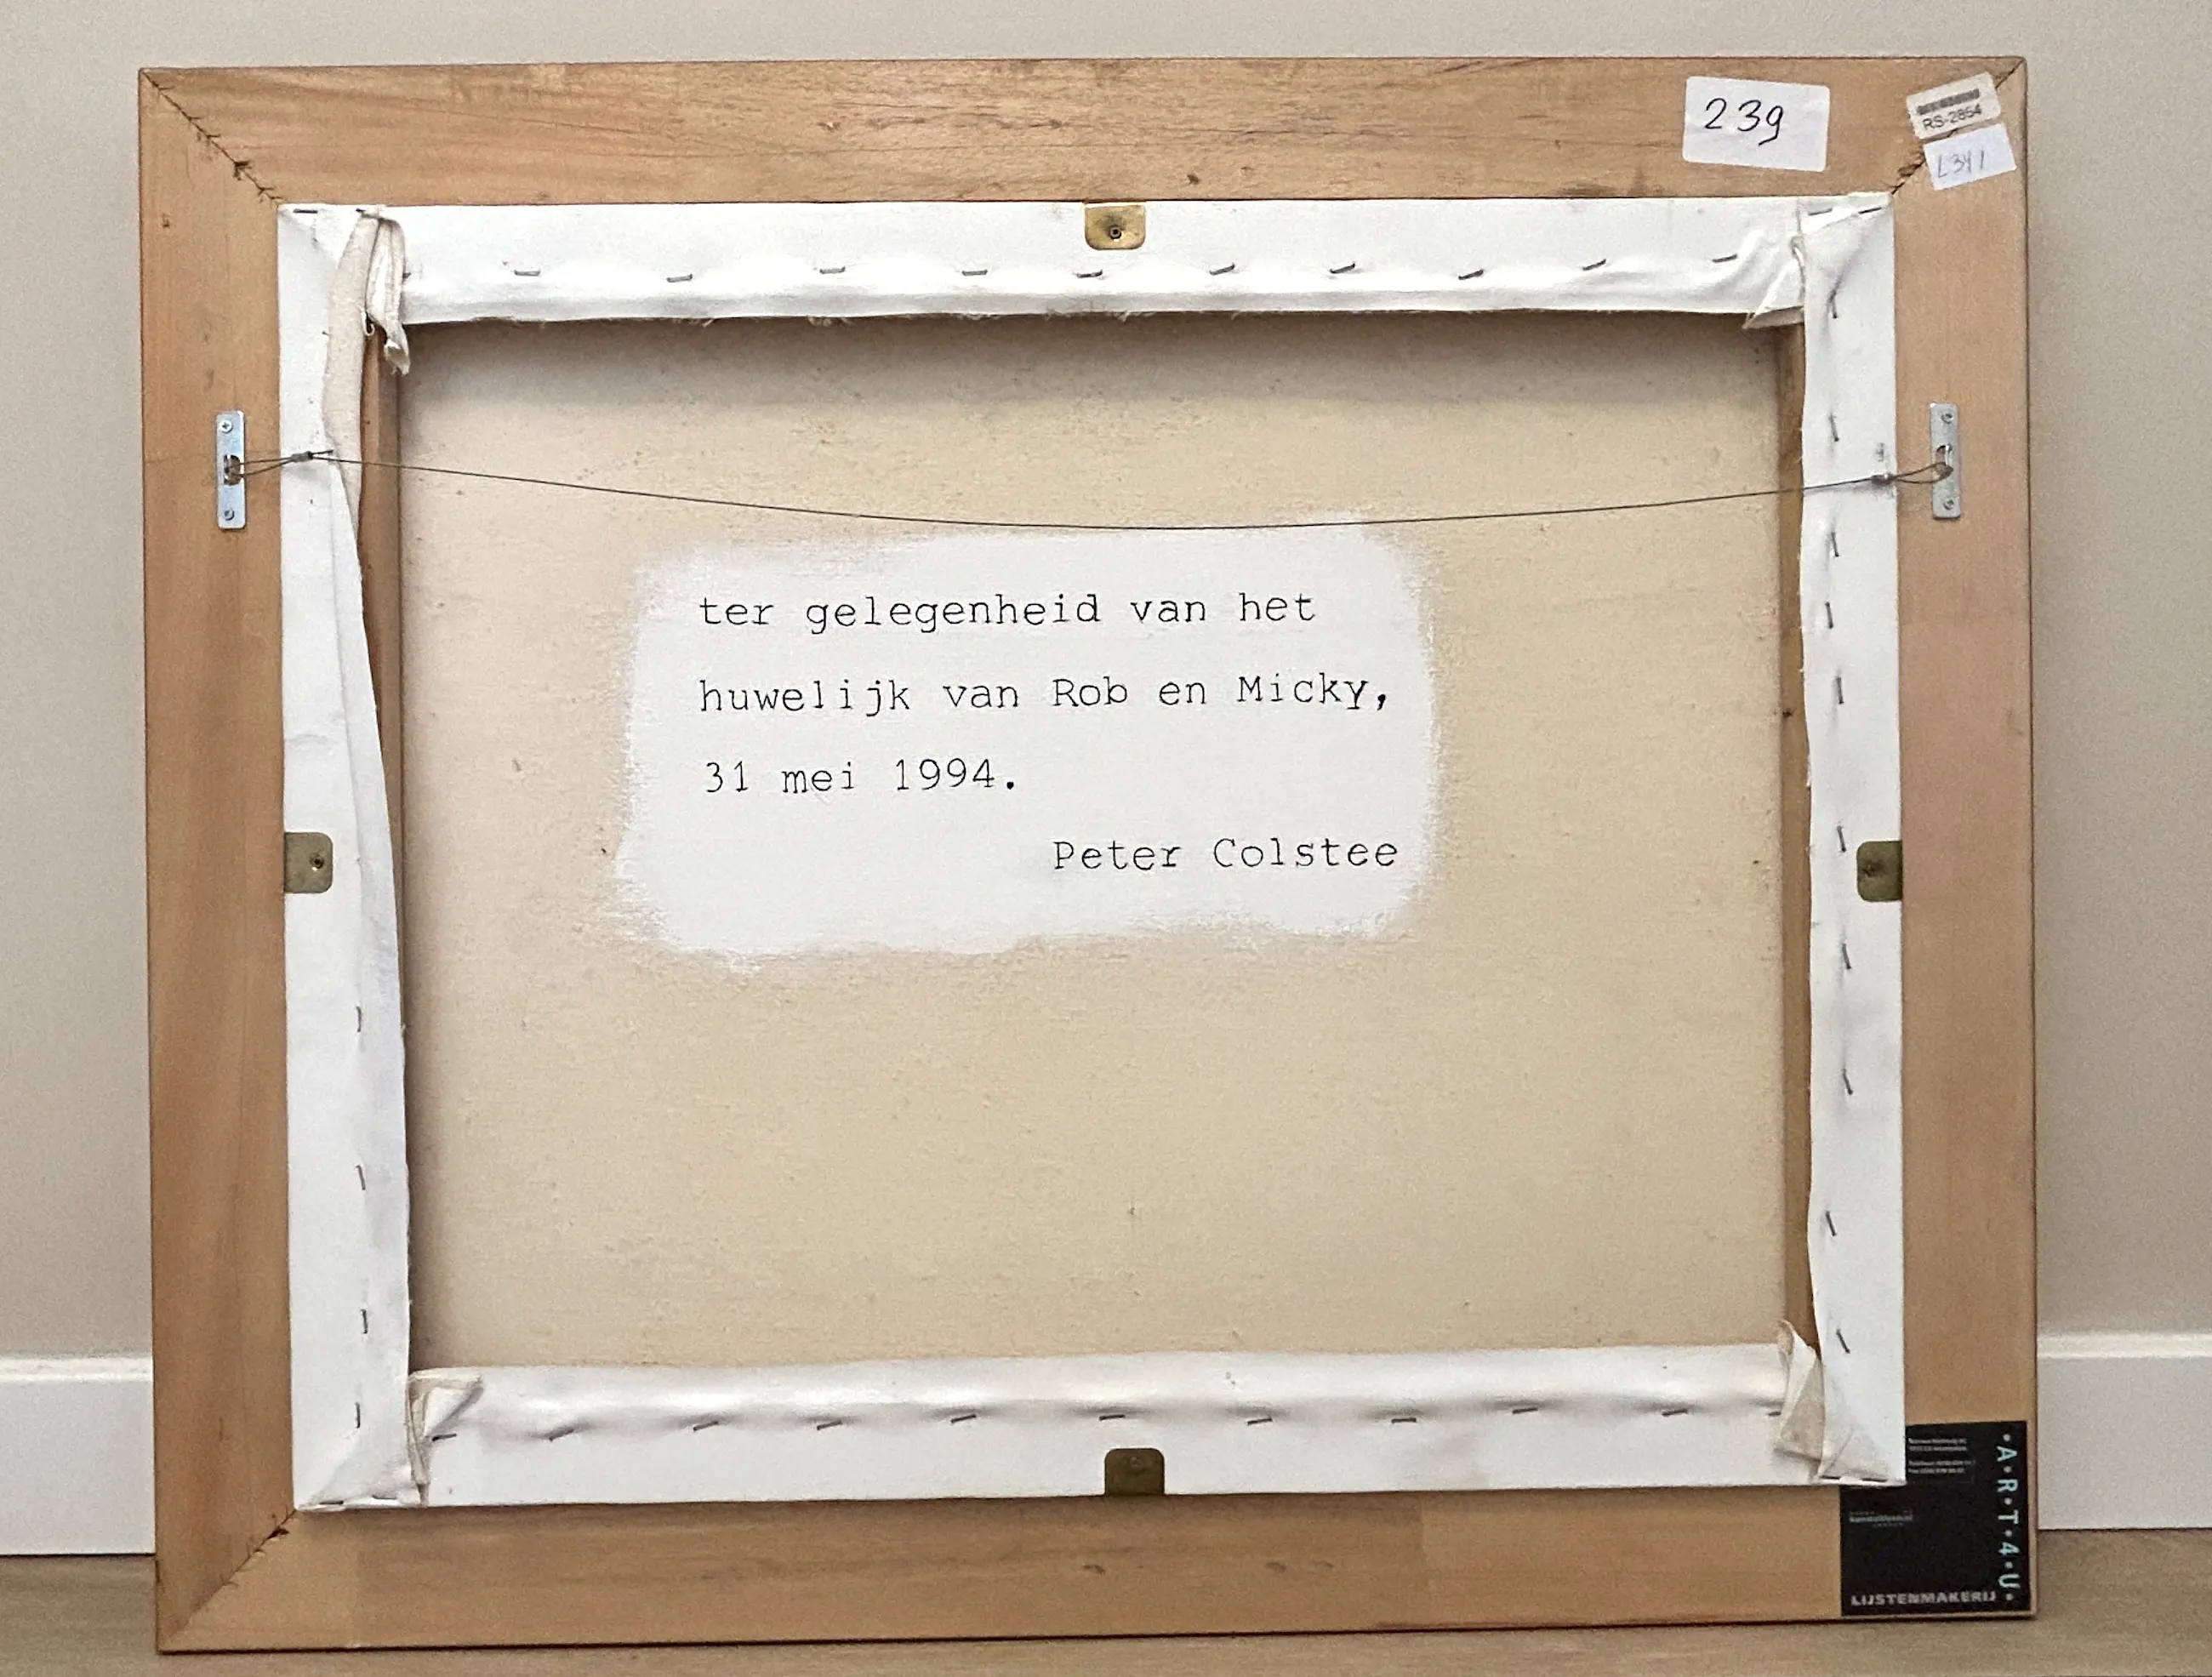 239
RS-2854
L341
ter gelegenheid van het
huwelijk van Rob en Micky,
31 mei 1994.
Peter Colstee
·A·R·T·4·U·
LIJSTENMAKERIJ